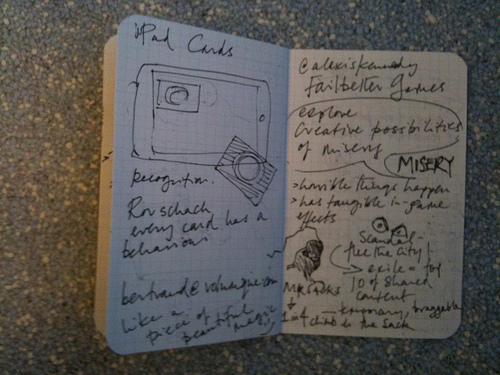 iPad Cards
recognition.
Rorschach
every card has a
behaviour
like a
piece of
beautiful
magic
@alexiskennedy
Failbetter Games
explore
Creative possibilities
of misery
MISERY
> horrible things happen
> has tangible in-game
effects
Scandal -
flee the city!
→ exile = for
10 of shared
content
Mr Sacks
temporary, braggable
climb in the sack